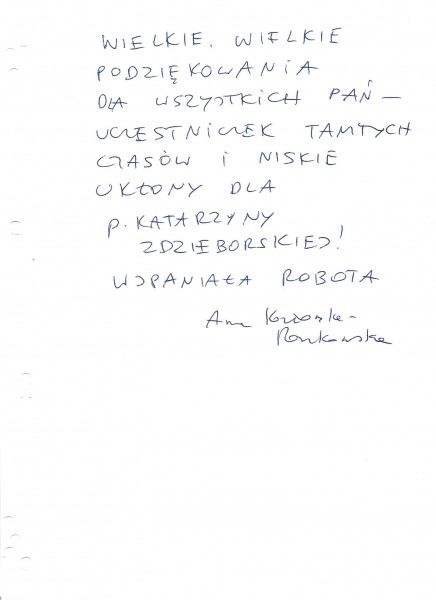 WIELKIE, WIELKIE
PODZIĘKOWANIA
DLA WSZYSTKICH PAŃ —
UCZESTNICZEK TAMTYCH
CZASÓW I NISKIE
UKŁONY DLA
P. KATARZYNY
ZDZIEBORSKIEJ!
WSPANIAŁA ROBOTA